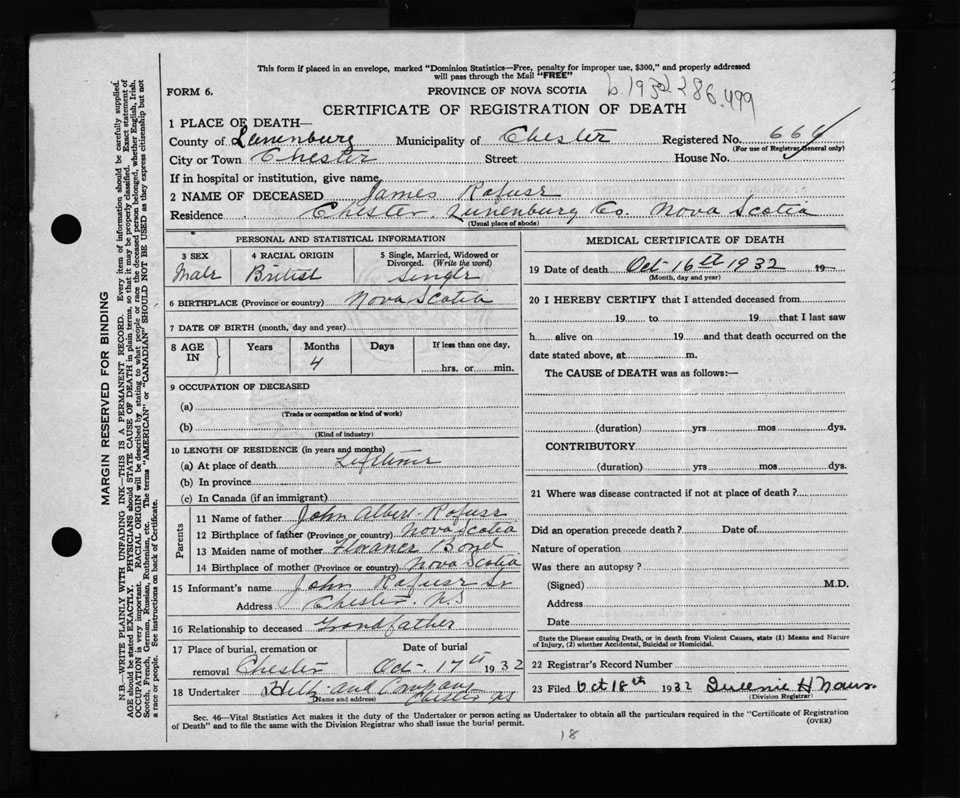 This form if placed in an envelope, marked "Dominion Statistics—Free, penalty for improper use, $300," and properly addressed
will pass through the Mail "FREE"
FORM 6.
PROVINCE OF NOVA SCOTIA
b. 1932 286.499
CERTIFICATE OF REGISTRATION OF DEATH
1 PLACE OF DEATH—
County of Lunenburg Municipality of Chester Registered No.
(For use of Registrar General only)
City or Town Chester Street House No.
If in hospital or institution, give name
2 NAME OF DECEASED James Rafuse
Residence Chester, Lunenburg Co. Nova Scotia
(Usual place of abode)
PERSONAL AND STATISTICAL INFORMATION
3 SEX 4 RACIAL ORIGIN 5 Single, Married, Widowed or
Divorced. (Write the word)
Male British Single
6 BIRTHPLACE (Province or country) Nova Scotia
7 DATE OF BIRTH (month, day and year)
8 AGE IN Years Months Days If less than one day,
4 hrs. or min.
9 OCCUPATION OF DECEASED
(a)
(Trade or occupation or kind of work)
(b)
(Kind of industry)
10 LENGTH OF RESIDENCE (in years and months)
(a) At place of death Lifetime
(b) In province
(c) In Canada (if an immigrant)
Parents
11 Name of father John Albert Rafuse
12 Birthplace of father (Province or country) Nova Scotia
13 Maiden name of mother Florance Bond
14 Birthplace of mother (Province or country) Nova Scotia
15 Informant's name John Rafuse Sr
Address Chester. N.S
16 Relationship to deceased Grandfather
17 Place of burial, cremation or Date of burial
removal Chester Oct- 17th 1932
18 Undertaker and Company
(Name and address) Chester NS
MEDICAL CERTIFICATE OF DEATH
19 Date of death Oct 16th 1932 19
(Month, day and year)
20 I HEREBY CERTIFY that I attended deceased from
19 to 19 that I last saw
h alive on 19 and that death occurred on the
date stated above, at m.
The CAUSE of DEATH was as follows:—
(duration) yrs mos dys.
CONTRIBUTORY
(duration) yrs mos dys.
21 Where was disease contracted if not at place of death?
Did an operation precede death? Date of
Nature of operation
Was there an autopsy?
(Signed) M.D.
Address
Date
State the Disease causing Death, or in death from Violent Causes, state (1) Means and Nature
of Injury, (2) whether Accidental, Suicidal or Homicidal.
22 Registrar's Record Number
23 Filed Oct 18th 1932 Queenie H
(Division Registrar)
Sec. 46—Vital Statistics Act makes it the duty of the Undertaker or person acting as Undertaker to obtain all the particulars required in the "Certificate of Registration
of Death" and to file the same with the Division Registrar who shall issue the burial permit. (OVER)
18
MARGIN RESERVED FOR BINDING
N.B.—WRITE PLAINLY WITH UNFADING INK—THIS IS A PERMANENT RECORD. Every item of information should be carefully supplied.
AGE should be stated EXACTLY. PHYSICIANS should STATE CAUSE OF DEATH in plain terms, so that it may be properly classified. Exact statement of
OCCUPATION is very important. RACIAL ORIGIN will be described by stating to what people or race the deceased person belonged, whether English, Irish,
Scotch, French, German, Russian, Ruthenian, etc. The terms "AMERICAN" or "CANADIAN" SHOULD NOT BE USED as they express citizenship but not
a race or people. See instructions on back of Certificate.